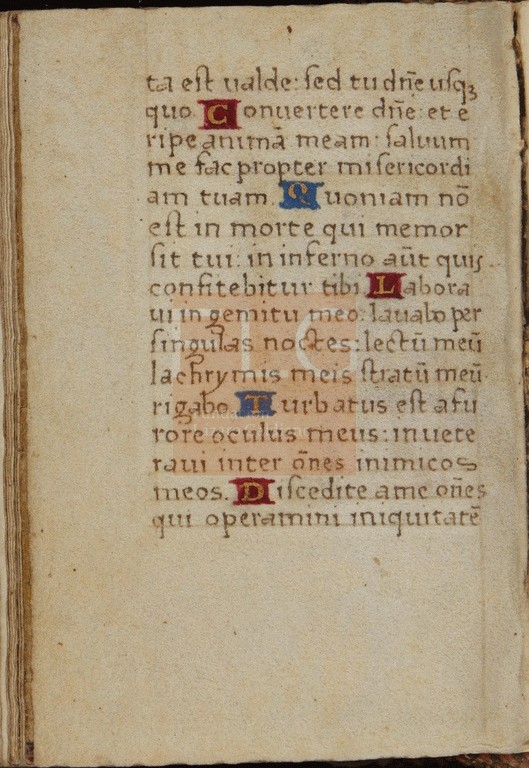 ta est ualde: sed tu dn̄e usqꝫ
quo Conuertere dn̄e: et e
ripe animā meam: saluum
me fac propter misericordi
am tuam Quoniam nō
est in morte qui memor
sit tui: in inferno aūt quis
confitebitur tibi Labora
ui in gemitu meo: lauabo per
singulas noctes: lectū meū
lachrymis meis stratū meū
rigabo. Turbatus est a fu
rore oculus meus: inuete
raui inter ōnes inimicos
meos. Discedite a me ōnes
qui operamini iniquitatē